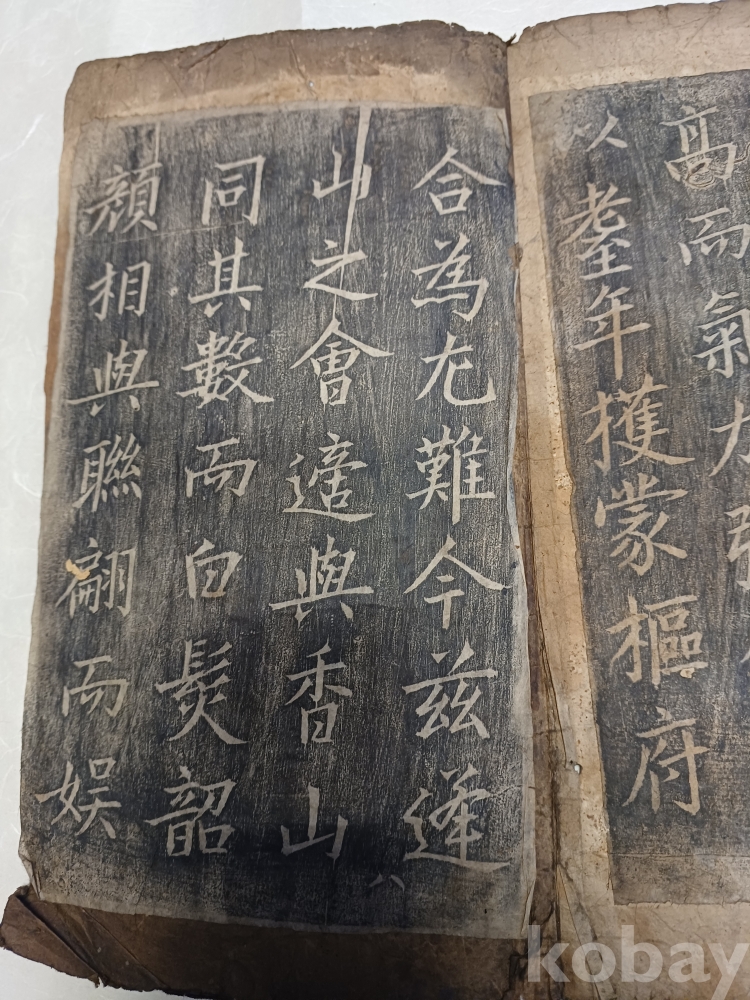 高而氣力
以耋年獲蒙樞府
合為尤難今茲逢
山之會適與香山
同其數而白髮韶
顏相與聯翩而娛
八
kobay